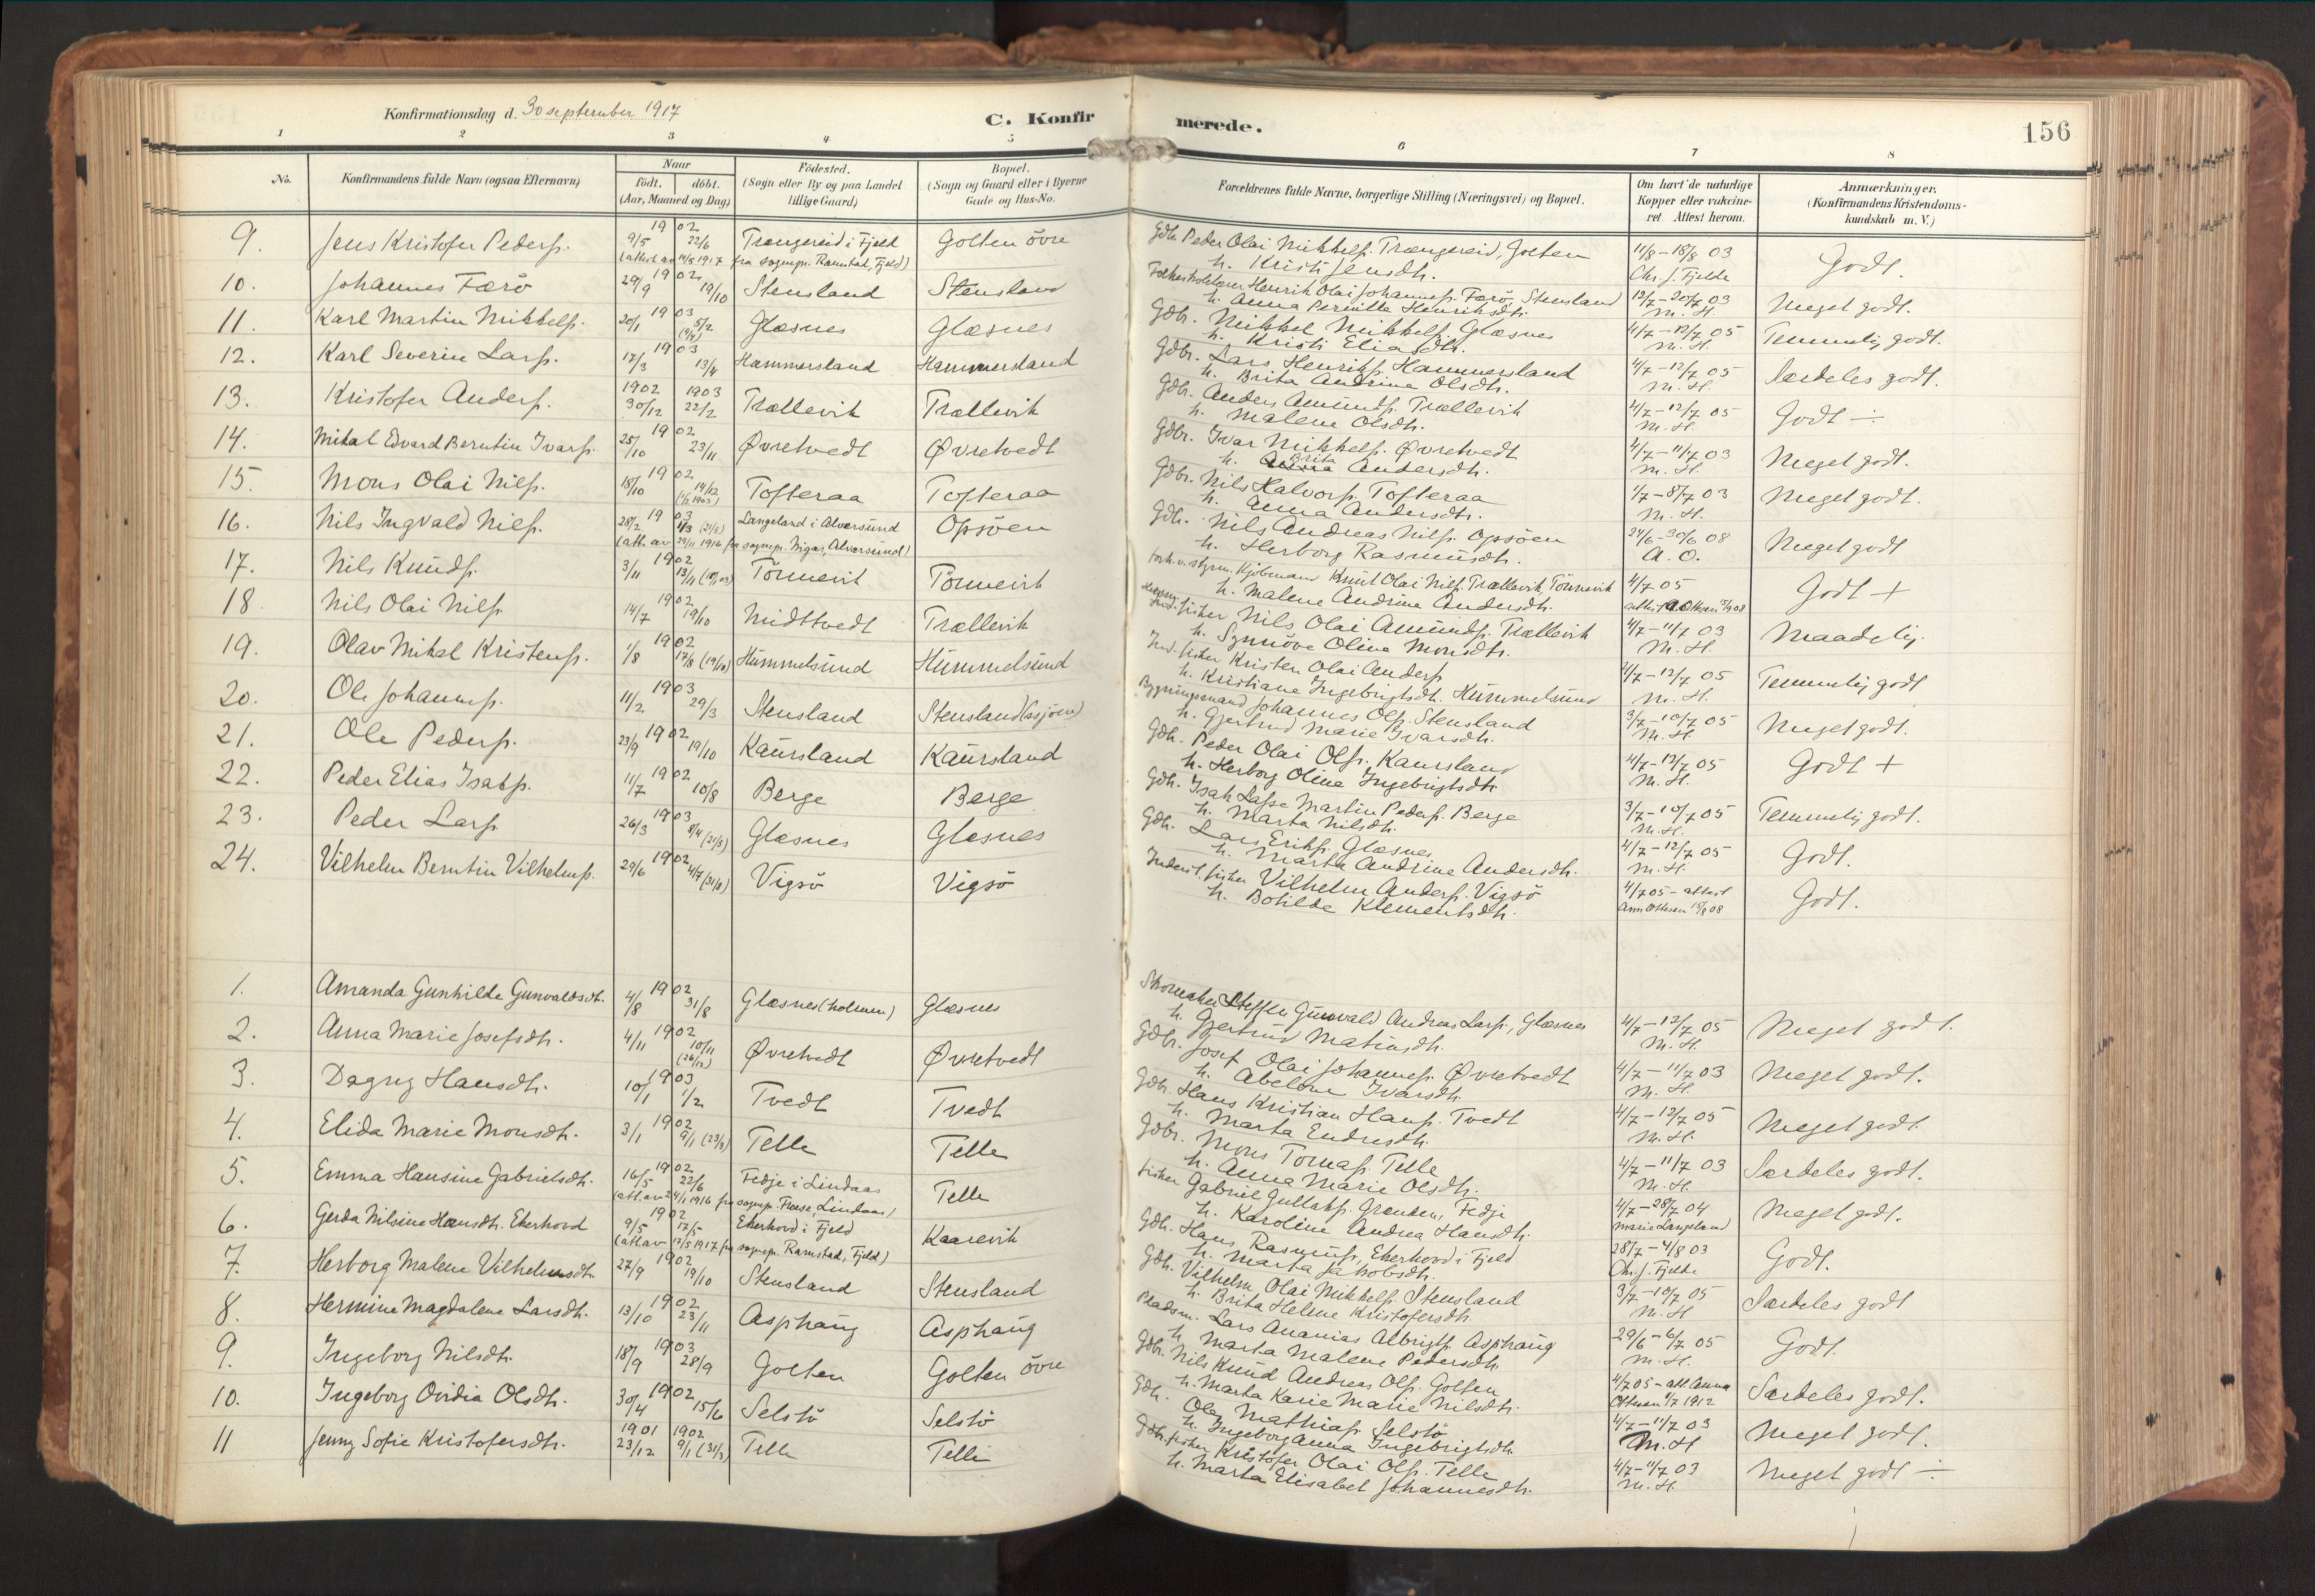 Konfirmationsdag d. 30 september 1917
C. Konfirmerede.
156
1 2 3 4 5 6 7 8
No.
Konfirmandens fulde Navn (ogsaa Efternavn)
Naar
födt. döbt.
(Aar, Maaned og Dag)
Födested.
(Sogn eller By og paa Landet
tillige Gaard)
Bopæl.
(Sogn og Gaard eller i Byerne
Gade og Hus-No.
Forældrenes fulde Navne, borgerlige Stilling (Næringsvei) og Bopæl.
Om havt de naturlige
Kopper eller vakcine-
ret Attest herom.
Anmærkninger.
(Konfirmandens Kristendoms-
kundskab m. V.)
9. Jens Kristofer Pederss. 1902 9/5 22/6 Trængereid i Fjeld Golten övre Gdb. Peder Olai Mikkelss. Trængereid, Golten 11/8-18/8 03 Godt.
(attest av 14/5 1917 fra sognepr. Ramstad, Fjeld) h. Kristi Jensdtr. Chr. J. Fjelde
10. Johannes Færö 1902 29/9 19/10 Stensland Stensland Folkeskolelærer Henrik Olai Johanness. Færö, Stensland 12/7-20/7 03 Meget godt.
h. Anna Pernille Henriksdtr. M. H.
11. Karl Martin Mikkelss. 1903 20/1 5/2 Glæsnes Glæsnes Gdbr. Mikkel Mikkelss. Glæsnes 4/7-12/7 05 Temmelig godt.
h. Kristi Eliasdtr. M. H.
12. Karl Severin Larss. 1903 17/3 13/4 Hammersland Hammersland Gdbr. Lars Henrikss. Hammersland 4/7-12/7 05 Særdeles godt.
h. Brita Andrine Olsdtr. M. H.
13. Kristofer Anderss. 1902 1903 30/12 22/2 Trællevik Trællevik Gdbr. Anders Amundss. Trællevik 4/7-12/7 05 Godt ÷
h. Malene Olsdtr. M. H.
14. Mikal Edvard Berntin Ivarss. 1902 25/10 23/11 Øvretvedt Øvretvedt Gdbr. Ivar Mikkelss. Øvretvedt 4/7-11/7 03 Meget godt.
h. Brita Andersdtr. M. H.
15. Mons Olai Nilss. 1902 18/10 14/12 (1/2 1903) Tofteraa Tofteraa Gdbr. Nils Halvorss. Tofteraa 1/7-8/7 03 Meget godt.
h. Anna Andersdtr. M. H.
16. Nils Ingvald Nilss. 1903 28/2 1/3 (21/5) Langeland i Alversund Opsöen Gdb. Nils Andreas Nilss. Opsöen 24/6-30/6 08 Meget godt
(att. av 29/11 1916 fra sognepr. Nigar, Alversund) h. Herborg Rasmusdtr. A. O.
17. Nils Knudss. 1902 3/11 13/11 Tönnevik Tönnevik Kjöbmand Knut Olai Nilss. Trællevik, Tönnevik 4/7 05 Godt +
h. Malene Andrine Andersdtr. attest A Ottesen 15/9 08
18. Nils Olai Nilss. 1902 14/7 19/10 Midttvedt Trællevik fisker Nils Olai Amundss. Trællevik 4/7-11/7 03 Maadelig.
h. Synnöve Oline Monsdtr. M. H.
19. Olav Mikal Kristenss. 1902 1/8 17/8 (19/10) Hummelsund Hummelsund Ind. fisker Kristen Olai Anderss. 4/7-12/7 05 Temmelig godt
h. Kristiane Ingebrigtsdtr. Hummelsund M. H.
20. Ole Johanness. 1903 11/2 29/3 Stensland Stensland Bygningsmand Johannes Olss. Stensland 3/7-10/7 05 Meget godt.
h. Gjertrud Marie Ivarsdtr. M. H.
21. Ole Pederss. 1902 23/9 19/10 Kaursland Kaursland Gdb. Peder Olai Olss. Kaursland 4/7-12/7 05 Godt +
h. Herborg Oline Ingebrigtsdtr. M. H.
22. Peder Elias Isakss. 1902 11/7 10/8 Berge Berge Gdb. Isak Lasse Martin Pederss. Berge 3/7-10/7 05 Temmelig godt.
h. Marta Nilsdtr. M. H.
23. Peder Larss. 1903 26/3 8/4 (21/5) Glæsnes Glæsnes Gdb. Lars Erikss. Glæsnes 4/7-12/7 05 Godt.
h. Marta Andrine Andersdtr. M. H.
24. Vilhelm Berntin Vilhelmss. 1902 29/6 4/7 (31/8) Vigsö Vigsö Inderst, fisker Vilhelm Anderss. Vigsö 4/7 05 - attest Godt.
h. Botilde Klementsdtr. Anna Ottesen 15/8 08
1. Amanda Gunhilde Gunvaldsdtr. 1902 4/8 31/8 Glæsnes (holmen) Glæsnes Skomaker Steffen Gunvald Andreas Larss., Glæsnes 4/7-12/7 05 Meget godt.
h. Gjertrud Matiasdtr. M. H.
2. Anna Marie Josefsdtr. 1902 4/11 10/11 (26/12) Øvretvedt Øvretvedt Gdbr. Josef Olai Johanness. Øvretvedt 4/7-11/7 03 Meget godt.
h. Abelone Ivarsdtr. M. H.
3. Dagny Hansdtr. 1903 10/1 1/2 Tvedt Tvedt Gdbr. Hans Kristian Hanss. Tvedt 4/7-12/7 05 Meget godt.
h. Marta Endresdtr. M. H.
4. Elida Marie Monsdtr. 1902 3/1 9/1 (23/3) Telle Telle Gdbr. Mons Tomass. Telle 4/7-11/7 03 Særdeles godt.
h. Anna Marie Olsdtr. M. H.
5. Emma Hansine Gabrielsdtr. 1902 16/5 22/6 Fedje i Lindaas Telle fisker Gabriel Gullakss. Fedje 4/7-28/7 04 Meget godt.
(att. av 24/1 1916 fra sognepr. Lindaas) h. Karoline Andrea Hansdtr. Marie Langeland
6. Gerda Nilsine Hansdtr. Ekerhovd 1902 9/5 17/5 Ekerhovd i Fjeld Kaarevik Gdb. Hans Rasmuss. Ekerhovd i Fjeld 28/7-4/8 03 Godt.
(att av 12/5 1917 fra sognepr. Ramstad, Fjeld) h. Marta Jakobsdtr. Chr. J. Fjelde
7. Herborg Malene Vilhelmsdtr. 1902 27/9 19/10 Stensland Stensland Gdb. Vilhelm Olai Mikkelss. Stensland 3/7-10/7 05 Særdeles godt
h. Brita Helene Kristofersdtr. M. H
8. Hermine Magdalene Larsdtr. 1902 13/10 23/11 Asphaug Asphaug Pladsm. Lars Ananias Albrigts. Asphaug 29/6-6/7 05 Godt.
h. Marta Malene Pedersdtr. M. H.
9. Ingeborg Nilsdtr. 1903 18/9 28/9 Golten Golten övre Gdbr. Nils Knud Andreas Olss. Golten 4/7 05 - att Anna Særdeles godt.
h. Marta Karie Marie Nilsdtr. Ottesen 1/7 1912
10. Ingeborg Ovidia Olsdtr. 1902 30/4 15/6 Selstö Selstö Gdb. Ole Mathiass. Selstö 4/7-11/7 03 Meget godt.
h. Ingeborg Anna Ingebrigtsdtr. M. H
11 Jenny Sofie Kristofersdtr. 1901 1902 23/12 9/1 (31/3) Telle Telle Gdb. fisker Kristofer Olai Olss. Telle 4/7-11/7 03 Meget godt ÷
h. Marta Elisabet Johannesdtr. M. H.